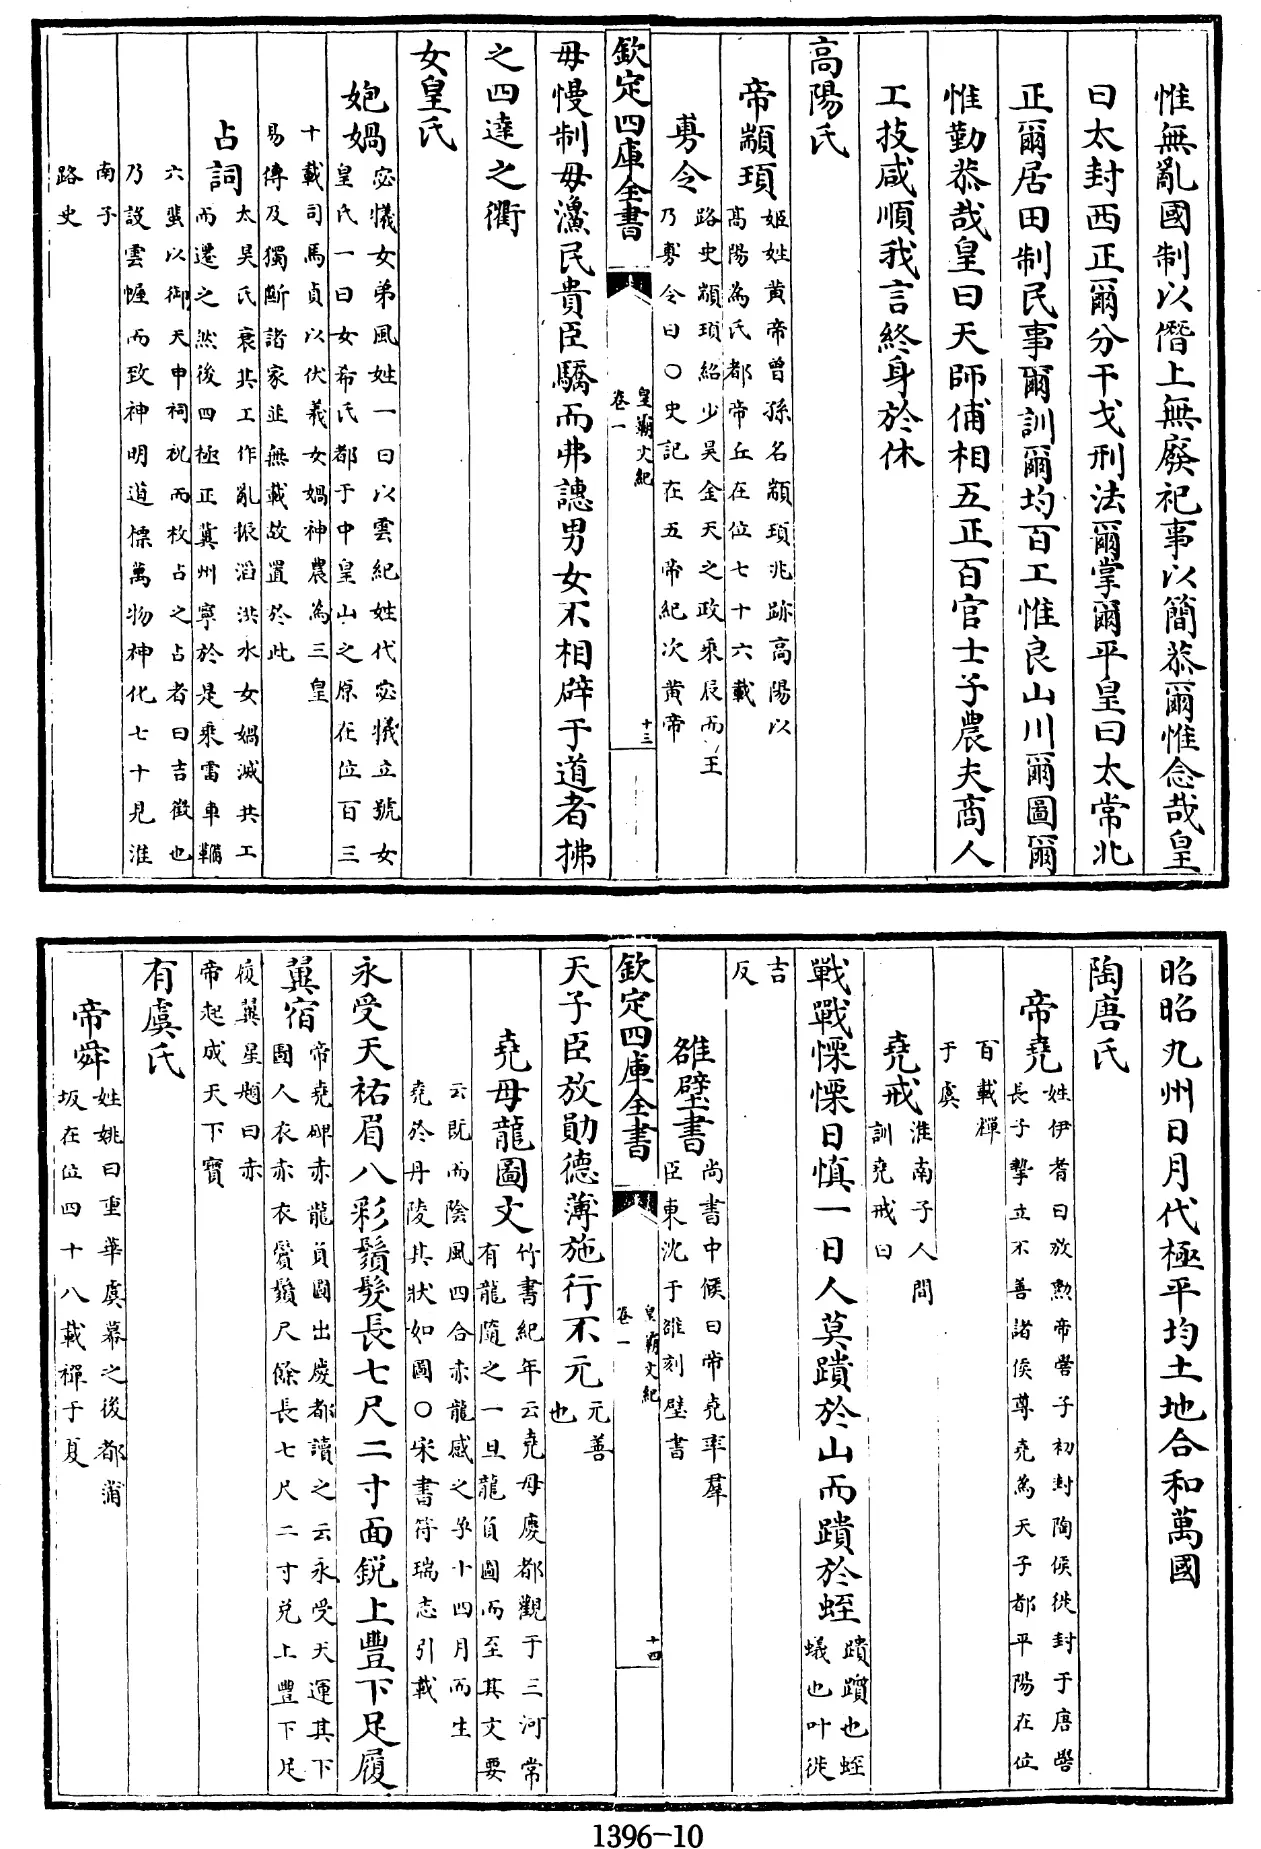 惟無亂國制以僭上無廢祀事以簡恭爾惟念哉皇
曰太封西正爾分干戈刑法爾掌爾平皇曰太常北
正爾居田制民事爾訓爾均百工惟良山川爾圖爾
惟勤恭哉皇曰天師俌相五正百官士子農夫商人
工技咸順我言終身於休
高陽氏
帝顓頊
姬姓黄帝曾孫名顓頊兆跡高陽以
髙陽為氏都帝丘在位七十六載
旉令
路史顓頊紹少昊金天之政乘辰而王
乃旉令曰○史記在五帝紀次黄帝
欽定四庫全書
皇霸文紀
卷一
十三
毋慢制毋濷民貴臣驕而弗譓男女不相辟于道者拂
之四達之衢
女皇氏
㛿媧
宓犧女弟風姓一曰以雲紀姓代宓犧立號女
皇氏一曰女希氏都于中皇山之原在位百三
十載司馬貞以伏羲女媧神農為三皇
易傳及獨斷諸家並無載故置於此
占詞
太昊氏衰共工作亂振滔洪水女媧滅共工
而遷之然後四極正冀州寧於是乘雷車鞴
六蜚以御天申祠祝而枚占之占者曰吉徵也
乃設雲幄而致神明道標萬物神化七十見淮
南子
路史
昭昭九州日月代極平均土地合和萬國
陶唐氏
帝堯
姓伊耆曰放勲帝嚳子初封陶侯徙封于唐嚳
長子摯立不善諸侯尊堯為天子都平陽在位
百載禪
于虞
堯戒
淮南子人間
訓堯戒曰
戰戰慄慄日慎一日人莫蹪於山而蹪於蛭
蹪躓也蛭
蟻也叶徙
吉
反
雒璧書
尚書中候曰帝堯率羣
臣東沈于雒刻璧書
欽定四庫全書
皇霸文紀
卷一
十四
天子臣放勛德薄施行不元
元善
也
堯母龍圖文
竹書紀年云堯母慶都觀于三河常
有龍隨之一旦龍負圖而至其文要
云既而陰風四合赤龍感之孕十四月而生
堯於丹陵其狀如圖○宋書符瑞志引載
永受天祐眉八彩鬚髮長七尺二寸面銳上豐下足履
翼宿
帝堯碑赤龍負圖出慶都讀之云永受天運其下
圖人衣赤衣鬢鬚尺餘長七尺二寸兌上豐下足
履翼星題曰赤
帝起成天下寶
有虞氏
帝舜
姓姚曰重華虞幕之後都蒲
坂在位四十八載禪于夏
1396-10